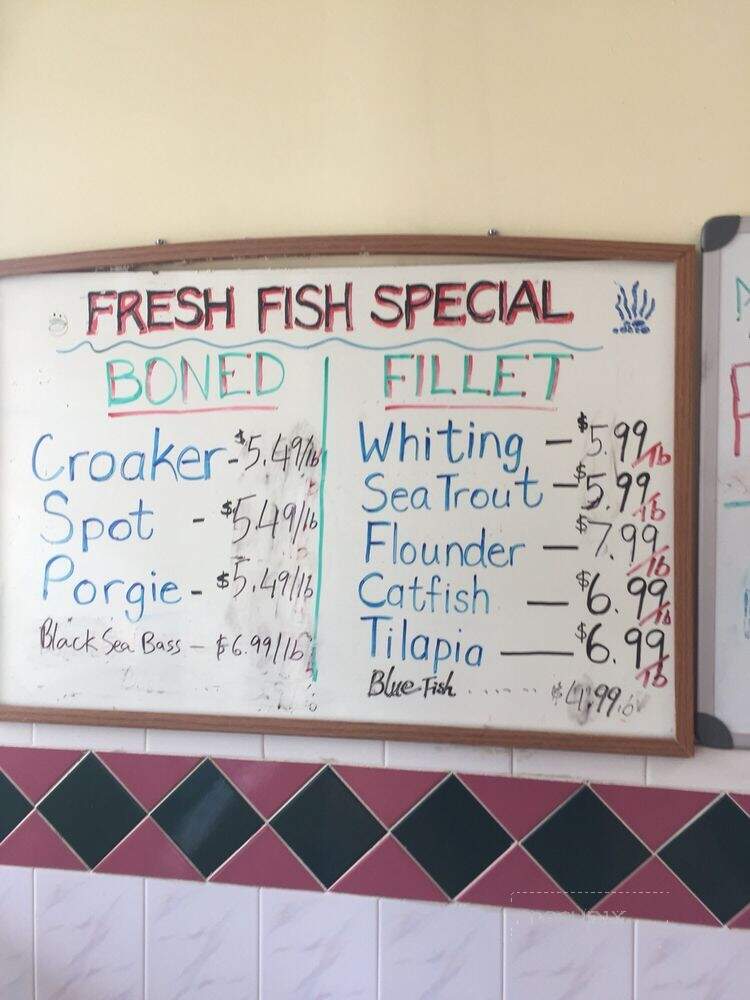 FRESH FISH SPECIAL
BONED
Croaker-$5.49/lb
Spot - $5.49/lb
Porgie - $5.49/lb
Black Sea Bass - $6.99/lb
FILLET
Whiting - $5.99/lb
Sea Trout - $5.99/lb
Flounder - $7.99/lb
Catfish - $6.99/lb
Tilapia - $6.99/lb
Blue Fish ...... $4.99